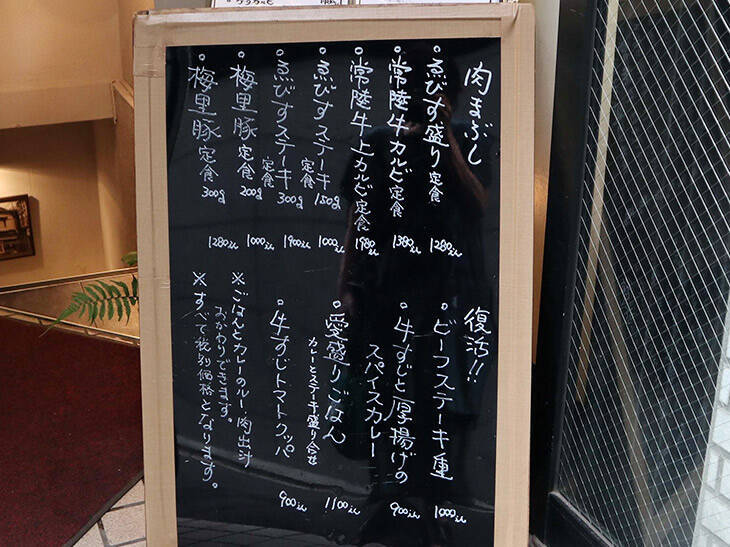 肉まぶし
・ゑびす盛り定食 1280yen
・常陸牛カルビ定食 1380yen
・常陸牛上カルビ定食 1980yen
・ゑびすステーキ定食 150g 1000yen
・ゑびすステーキ定食 300g 1900yen
・梅里豚定食 200g 1000yen
・梅里豚定食 300g 1280yen
復活!!
・ビーフステーキ重 1000yen
・牛すじと厚揚げの
スパイスカレー 900yen
・愛盛りごはん
カレーとステーキ盛り合せ 1100yen
・牛すじトマトクッパ 900yen
※ごはんとカレーのルー、肉出汁
おかわりできます。
※すべて税別価格となります。